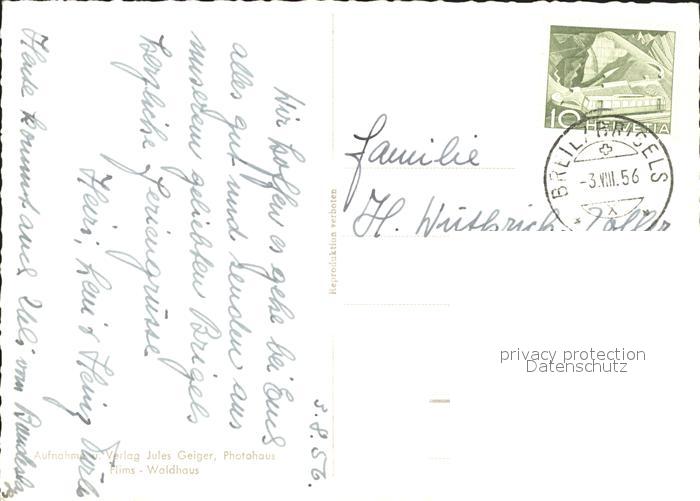 3.8.56.
Wir hoffen es gehe bei Euch
alles gut und senden aus
unserem geliebten Brigels
herzliche Feriengrüsse
Heiri, Leni & Heinz
Heute kommt auch Ueli vom
Aufnahme u. Verlag Jules Geiger, Photohaus
Flims - Waldhaus
Reproduktion verboten
10 HELVETIA
BREIL/BRIGELS
-3.VIII.56
X
Familie
H. Wüthrich-
privacy protection
Datenschutz